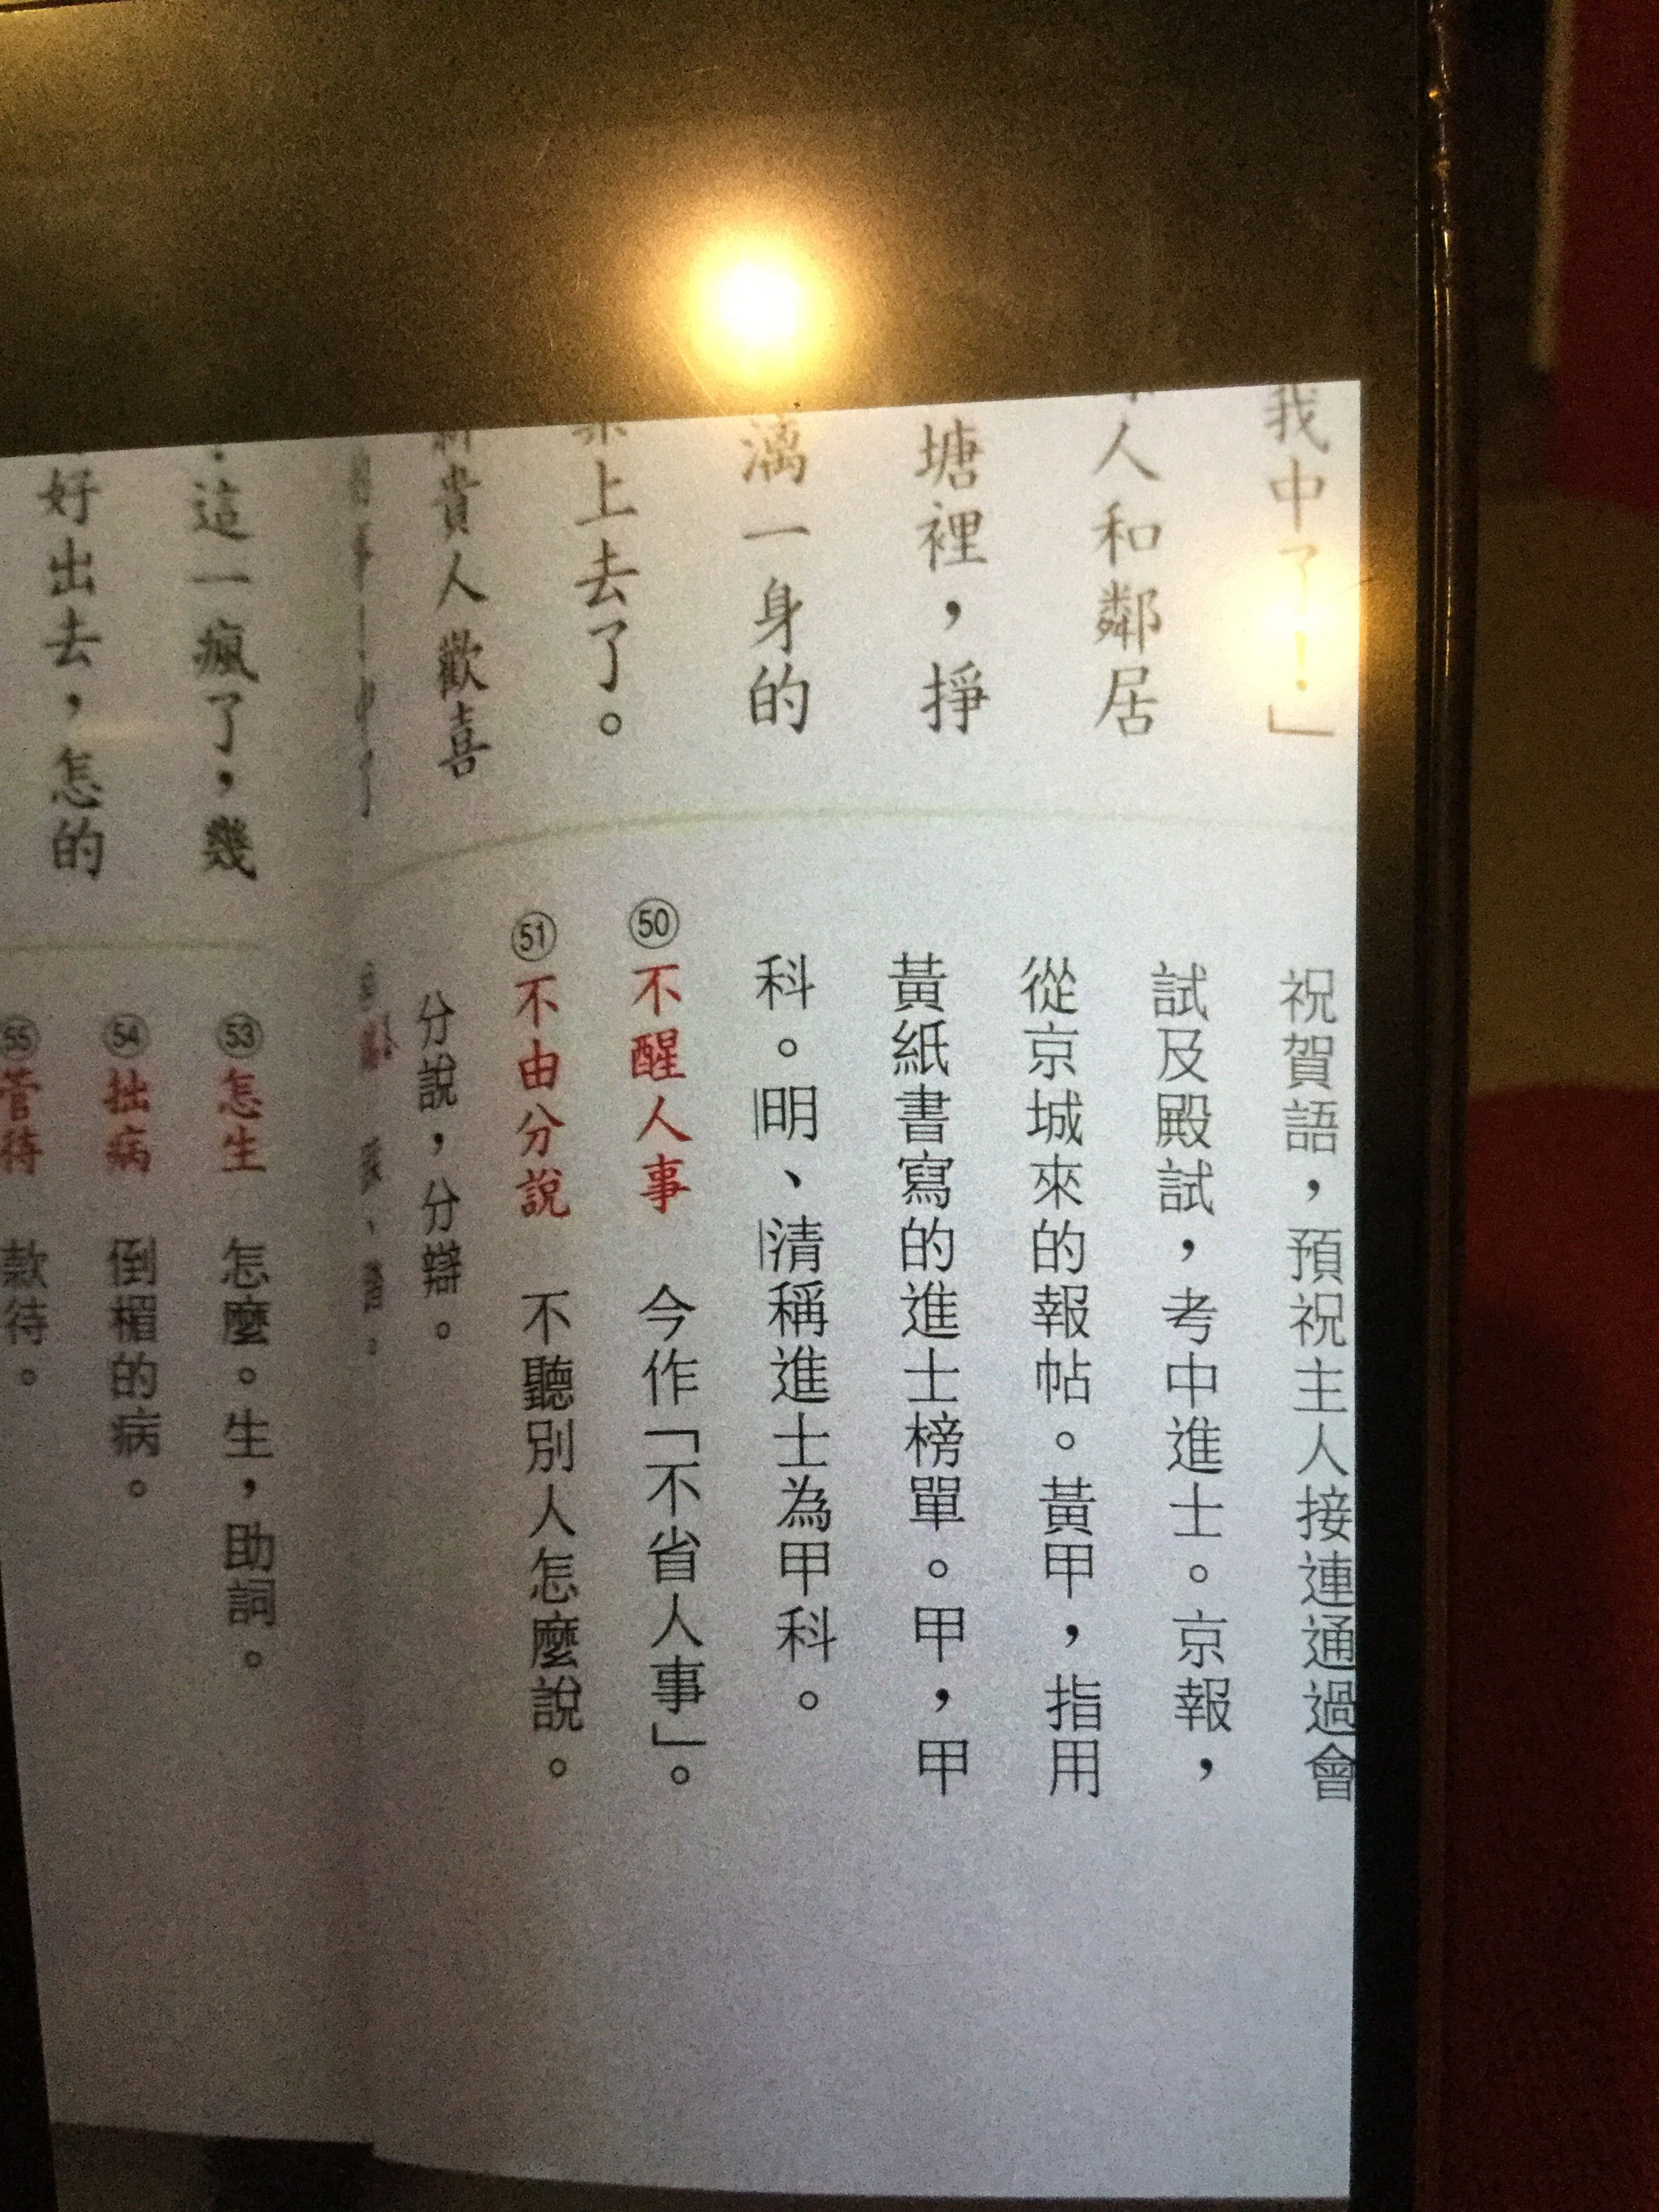 我中了！」
人和鄰居
塘裡，掙
漓一身的
上去了。
貴人歡喜
這一瘋了，幾
好出去，怎的
祝賀語，預祝主人接連通過會
試及殿試，考中進士。京報，
從京城來的報帖。黃甲，指用
黃紙書寫的進士榜單。甲，甲
科。明、清稱進士為甲科。
㊿不醒人事　今作「不省人事」。
51不由分說　不聽別人怎麼說。
分說，分辯。
53怎生　怎麼。生，助詞。
54拙病　倒楣的病。
55管待　款待。